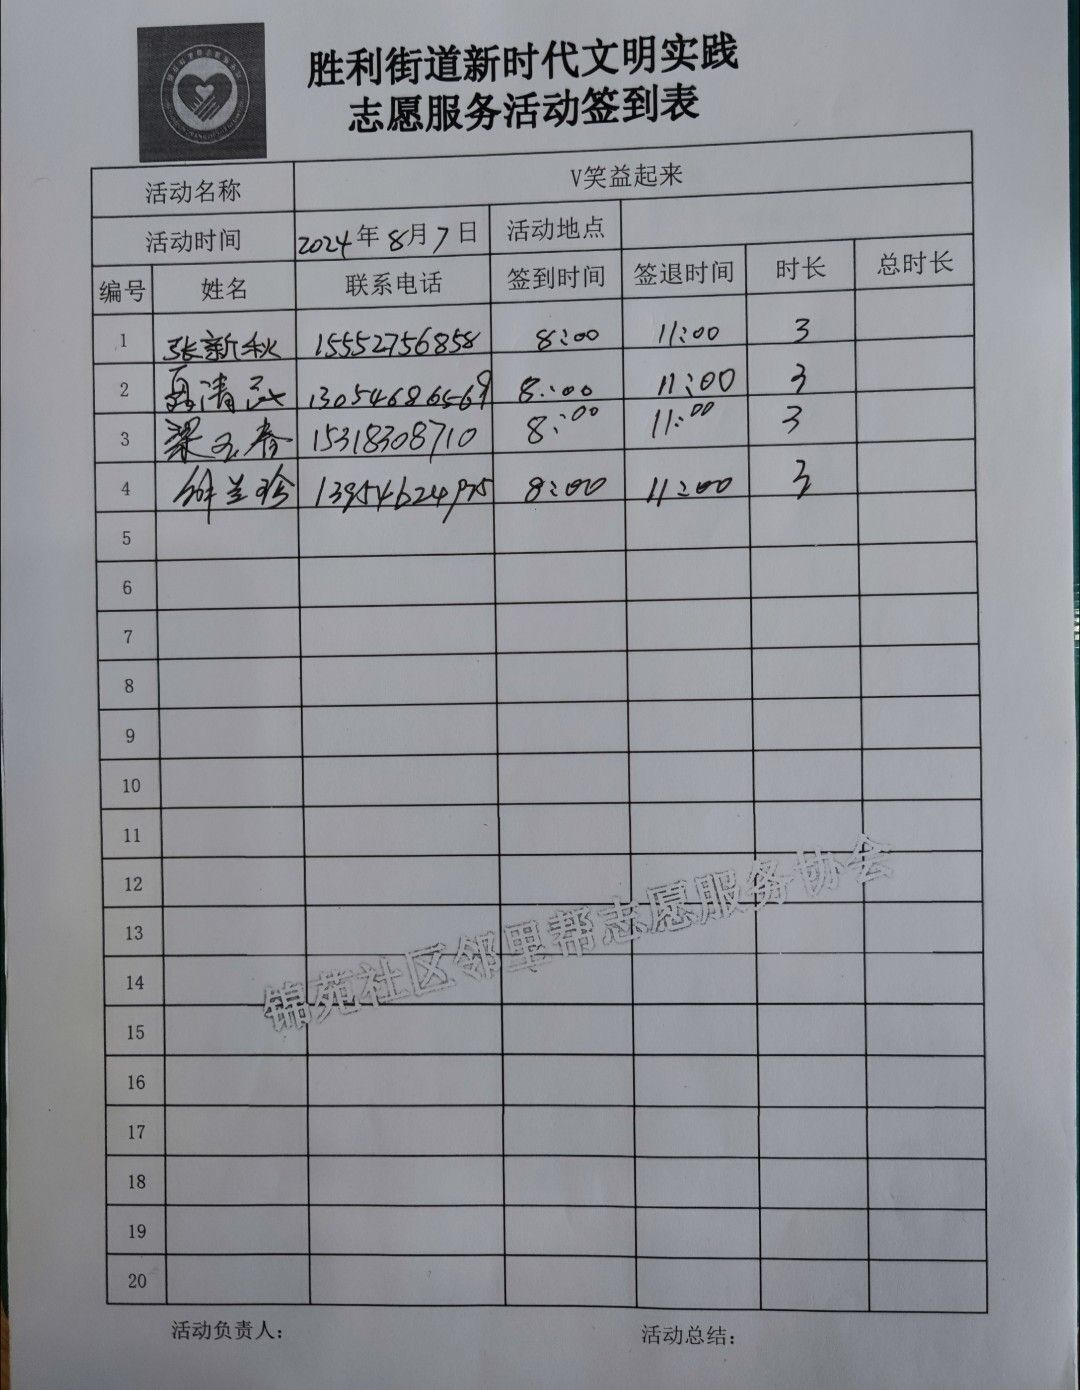 胜利街道新时代文明实践
志愿服务活动签到表
活动名称 V笑益起来
活动时间 2024年8月7日 活动地点
编号 姓名 联系电话 签到时间 签退时间 时长 总时长
1 张新秋 15552756858 8:00 11:00 3
2 清 13054686569 8:00 11:00 3
3 梁玉春 15318308710 8:00 11:00 3
4 兰珍 13954624975 8:00 11:00 3
5
6
7
8
9
10
11
12
13
14
15
16
17
18
19
20
锦苑社区邻里帮志愿服务协会
活动负责人： 活动总结：